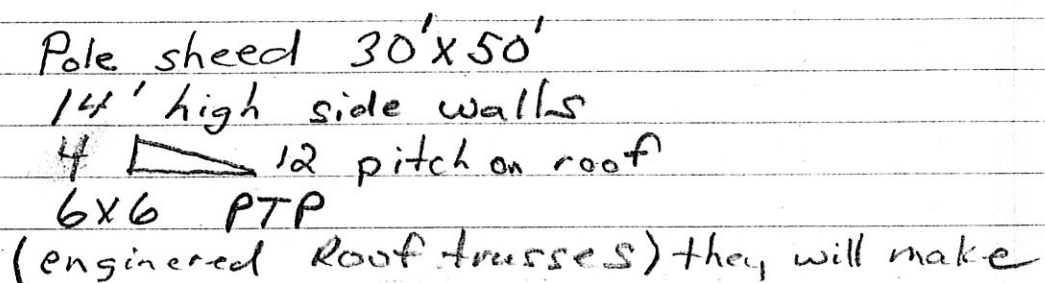 Pole sheed 30'x50'
14' high side walls
4 12 pitch on roof
6x6 PTP
(enginered Roof trusses) they will make